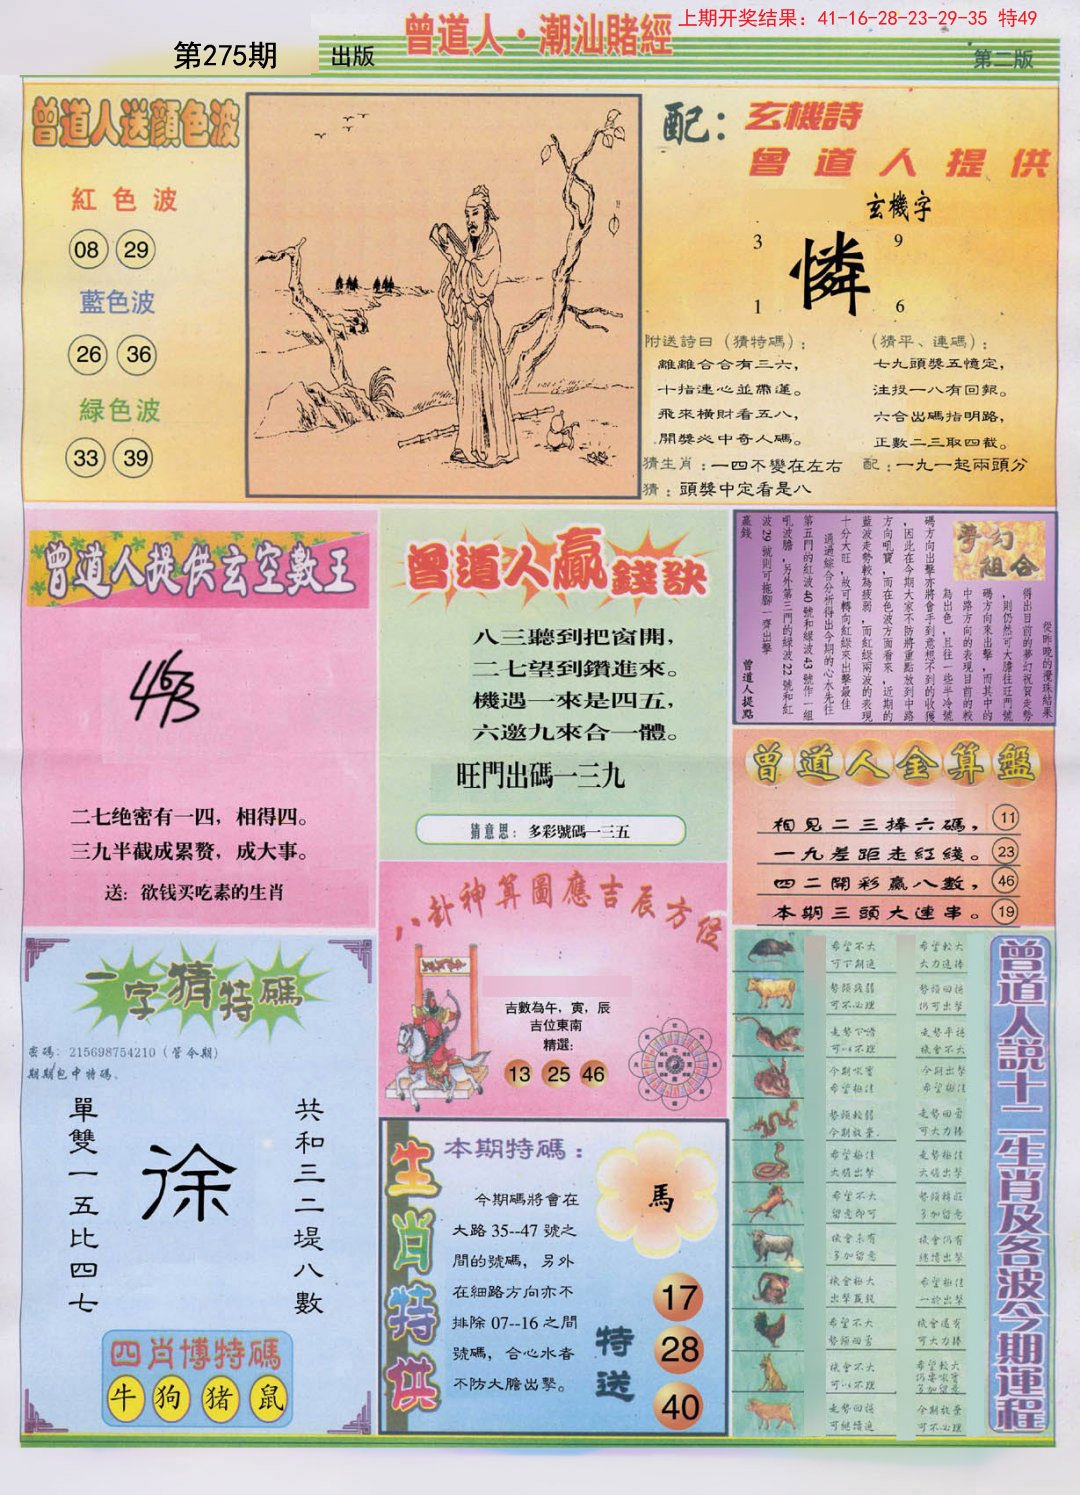 上期开奖结果：41-16-28-23-29-35 特49
曾道人·潮汕賭經
第275期
出版
第二版
曾道人送顏色波
紅色波
08 29
藍色波
26 36
緑色波
33 39
配：玄機詩
曾道人提供
玄機字
3 9
憐
1 6
附送詩曰（猜特碼）：
離離合合有三六，
十指連心並蒂蓮。
飛來橫財看五八，
開獎必中奇人碼。
（猜平、連碼）：
七九頭獎五憶定，
注投一八有回報。
六合出碼指明路，
正數二三取四截。
猜生肖：一四不變在左右
配：一九一起兩頭分
猜：頭獎中定看是八
曾道人提供玄空數王
463
二七绝密有一四，相得四。
三九半截成累赘，成大事。
送：欲钱买吃素的生肖
曾道人贏錢訣
八三聽到把窗開，
二七望到鑽進來。
機遇一來是四五，
六邀九來合一體。
旺門出碼一三九
猜意思：多彩號碼一三五
夢幻組合
從昨晚的攪珠結果
得出目前的夢幻祝賀走勢
，則仍然可大膽往旺門號
碼方向來出擊，而其中的
中路方向的表現目前的較
為出色，且往一些半冷號
碼方向出擊亦將會手到意想不到的收獲
，因此在今期大家不防將重點放到中路
方向吼寶，而在色波方面看來，近期的
藍波走勢較為疲弱，而紅綠兩波的表現
十分大旺，故可轉向紅綠來出擊最佳
。通過綜合分析得出今期的心水先往
第五門的紅波40號和綠波43號作一組
吼波膽，另外第三門的綠波22號和紅
波29號則可拖腳一齊出擊
贏錢
曾道人提點
曾道人金算盤
相見二三捧六碼， 11
一九差距走紅綫。 23
四二開彩贏八數， 46
本期三頭大連串。 19
八卦神算圖應吉辰方位
吉數為午，寅，辰
吉位東南
精選：
13 25 46
一字猜特碼
密碼：215698754210（管今期）
期期包中特碼。
單雙一五比四七
徐
共和三二堤八數
四肖博特碼
牛 狗 猪 鼠
生肖特供
本期特碼：
今期碼將會在
大路35--47號之
間的號碼，另外
在細路方向亦不
排除07--16之間
號碼，合心水者
不防大膽出擊。
馬
特送
17
28
40
曾道人説十二生肖及各波今期運程
希望不大
可下期進
希望較大
大力進捧
勢頭疲弱
可不必理
勢頭回穩
仍可出擊
今期吼寶
希望極佳
今期出擊
希望極佳
勢頭較弱
今期放棄.
走勢回勇
可大力捧
希望極佳
大膽出擊
走勢極佳
大膽出擊
希望不大
留意即可
機會未有
多加留意
機會仍有
繼續出擊
機會極大
出擊贏錢
希望極佳
一於出擊
希望不大
勢頭回勇
機會還有
可大力捧
機會不大
希望較大
多加留意
走勢回穩
可繼續進
今期放棄
可不必理